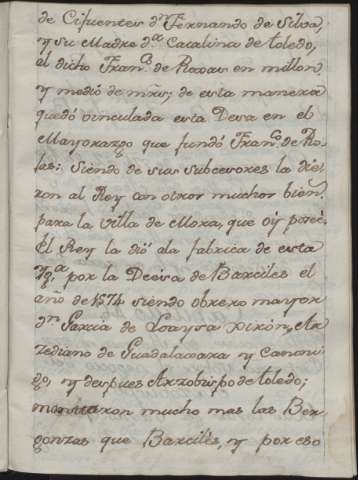 de Cifuentes dⁿ Fernando de Silva,
y su Madre dª Catalina de toledo,
el dicho Franᶜᵒ de Roxas en millon
y medio de mrs; de esta manera
quedó vinculada esta Desa en el
Mayorazgo que fundó Franᶜᵒ de Ro-
xas; Siendo de sus subcesores la die-
ron al Rey con otros muchos bien.ˢ
para la villa de Mora, que oy posee.
El Rey la dió ala fabrica de esta
Ygª por la Deesa de Barciles el
año de 1574 siendo obrero mayor
dⁿ Garcia de Loaysa xirón, Ar-
zediano de Guadalaxara y canoni-
go, y despues Arzobispo de toledo;
montaron mucho mas las Ber-
gonzas que Barciles, y por eso